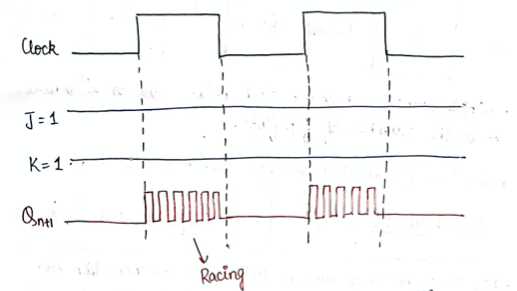 Clock
J=1
K=1
Qn+1
Racing